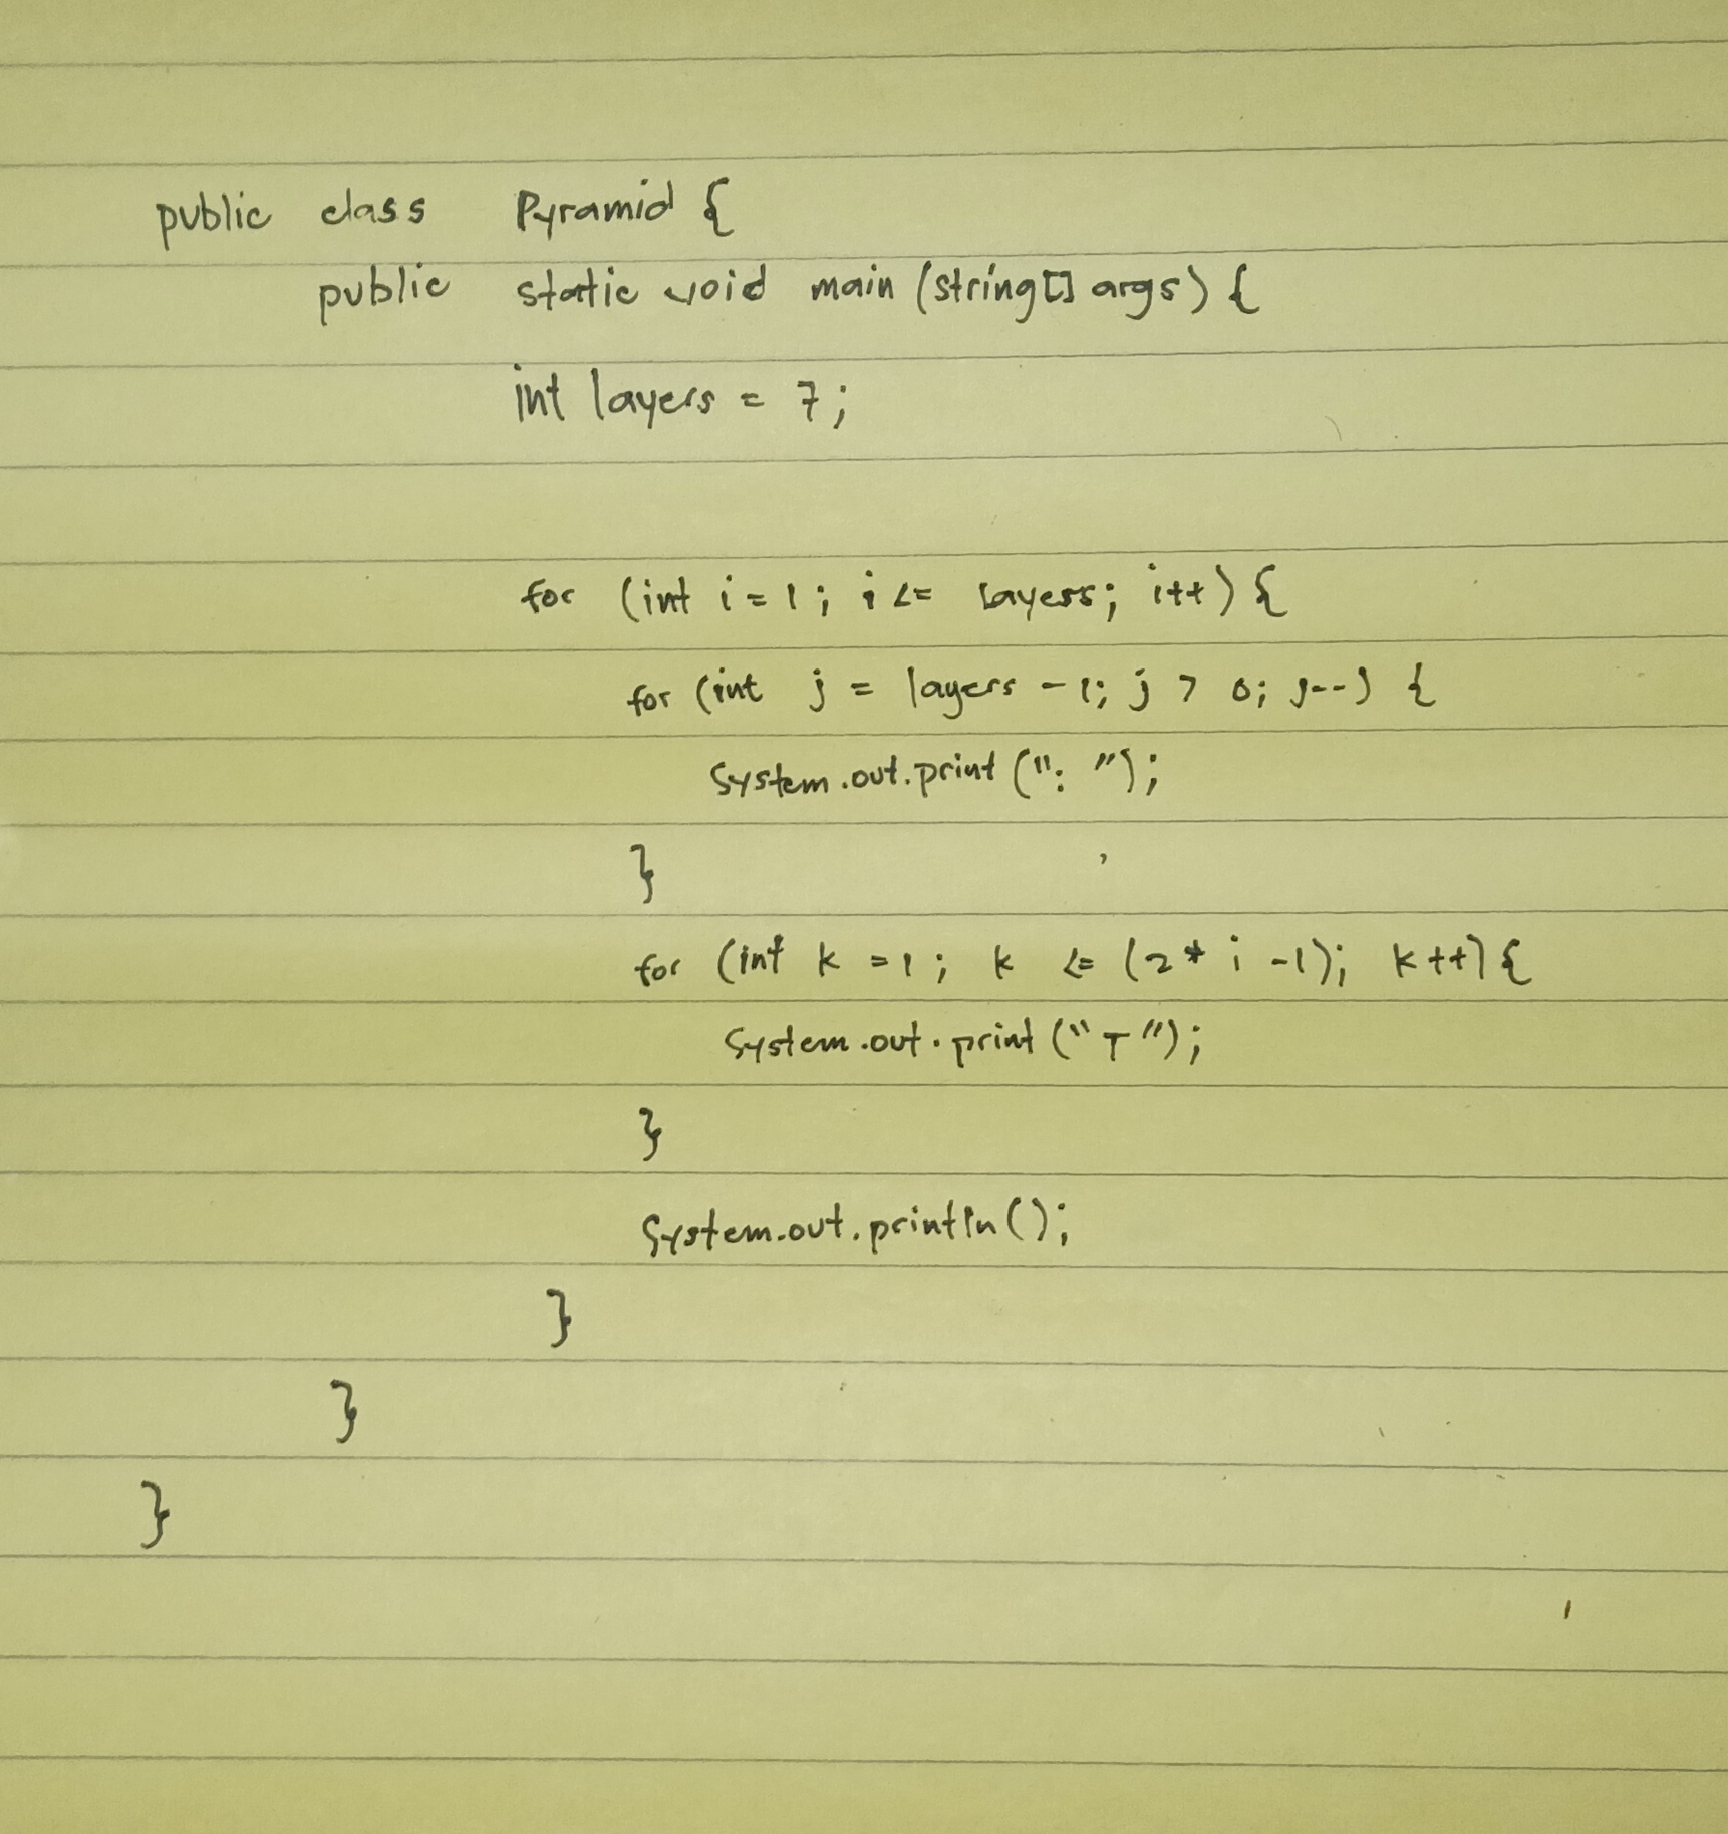 public class Pyramid {
public static void main (string[] args) {
int layers = 7;
for (int i = 1; i <= layers; i++) {
for (int j = layers - 1; j > 0; j--) {
System.out.print (": ");
}
for (int k = 1; k <= (2 * i - 1); k++) {
System.out.print ("T");
}
System.out.println ();
}
}
}